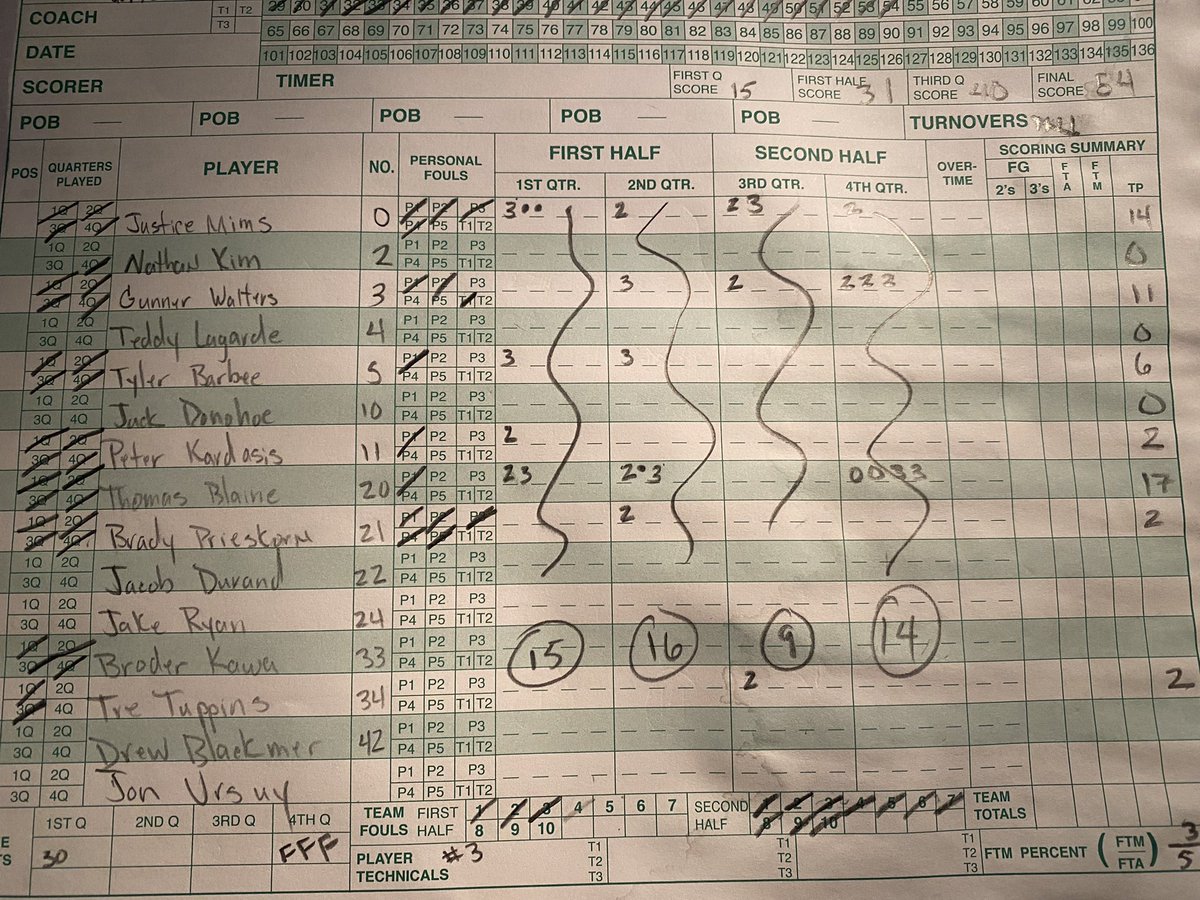 COACH T1 T2 29 30 31 32 33 34 35 36 37 38 39 40 41 42 43 44 45 46 47 48 49 50 51 52 53 54 55 56 57 58 59 60 61 62 63 64
T3 65 66 67 68 69 70 71 72 73 74 75 76 77 78 79 80 81 82 83 84 85 86 87 88 89 90 91 92 93 94 95 96 97 98 99 100
DATE 101 102 103 104 105 106 107 108 109 110 111 112 113 114 115 116 117 118 119 120 121 122 123 124 125 126 127 128 129 130 131 132 133 134 135 136
SCORER TIMER FIRST Q SCORE 15 FIRST HALF SCORE 31 THIRD Q SCORE 40 FINAL SCORE 54
POB — POB — POB — POB — POB — TURNOVERS
POS QUARTERS PLAYED PLAYER NO. PERSONAL FOULS FIRST HALF SECOND HALF OVER-TIME SCORING SUMMARY
1ST QTR. 2ND QTR. 3RD QTR. 4TH QTR. FG 2's 3's FTA FTM TP
1Q 2Q 3Q 4Q Justice Mims 0 P1 P2 P3 P4 P5 T1 T2 3 2 23 2 14
1Q 2Q 3Q 4Q Nathan Kim 2 P1 P2 P3 P4 P5 T1 T2 0
1Q 2Q 3Q 4Q Gunner Walters 3 P1 P2 P3 P4 P5 T1 T2 3 2 222 11
1Q 2Q 3Q 4Q Teddy Lagarde 4 P1 P2 P3 P4 P5 T1 T2 0
1Q 2Q 3Q 4Q Tyler Barbee 5 P1 P2 P3 P4 P5 T1 T2 3 3 6
1Q 2Q 3Q 4Q Jack Donohoe 10 P1 P2 P3 P4 P5 T1 T2 0
1Q 2Q 3Q 4Q Peter Kardasis 11 P1 P2 P3 P4 P5 T1 T2 2 2
1Q 2Q 3Q 4Q Thomas Blaine 20 P1 P2 P3 P4 P5 T1 T2 23 2•3 0033 17
1Q 2Q 3Q 4Q Brady Prieskorn 21 P1 P2 P3 P4 P5 T1 T2 2 2
1Q 2Q 3Q 4Q Jacob Durand 22 P1 P2 P3 P4 P5 T1 T2
1Q 2Q 3Q 4Q Jake Ryan 24 P1 P2 P3 P4 P5 T1 T2
1Q 2Q 3Q 4Q Broder Kawa 33 P1 P2 P3 P4 P5 T1 T2 15 16 9 14
1Q 2Q 3Q 4Q Tre Tuppins 34 P1 P2 P3 P4 P5 T1 T2 2 2
1Q 2Q 3Q 4Q Drew Blackmer 42 P1 P2 P3 P4 P5 T1 T2
1Q 2Q 3Q 4Q Jon Ursuy P1 P2 P3 P4 P5 T1 T2
1ST Q 2ND Q 3RD Q 4TH Q TEAM FOULS FIRST HALF 1 2 3 4 5 6 7 8 9 10 SECOND HALF 1 2 3 4 5 6 7 8 9 10 TEAM TOTALS
30 FFF PLAYER TECHNICALS #3 T1 T2 T3 T1 T2 T3 T1 T2 T3 FTM PERCENT (FTM/FTA) 3/5